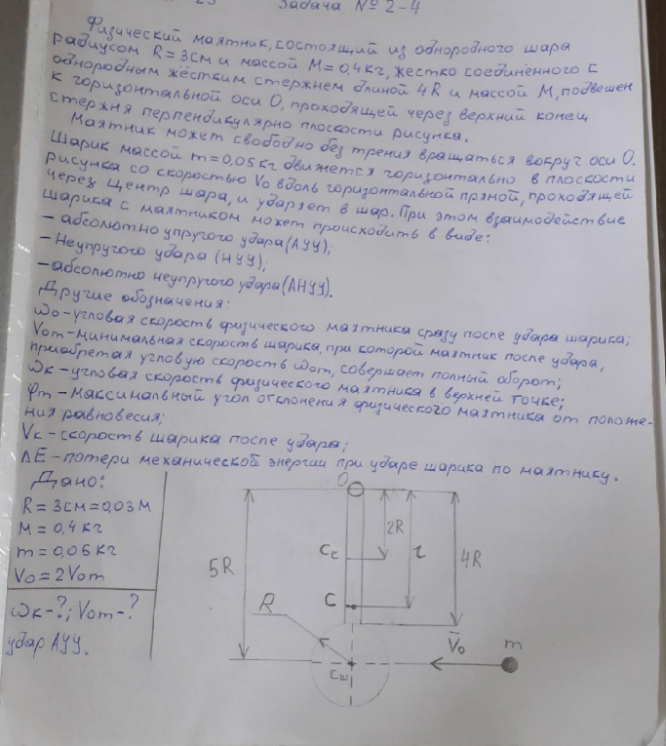 Задача № 2-4
Физический маятник, состоящий из однородного шара
радиусом R=3см и массой M=0,4кг, жестко соединённого с
однородным жёстким стержнем длиной 4R и массой M, подвешен
к горизонтальной оси О, проходящей через верхний конец
стержня перпендикулярно плоскости рисунка.
Маятник может свободно без трения вращаться вокруг оси О.
Шарик массой m=0,05кг движется горизонтально в плоскости
рисунка со скоростью V₀ вдоль горизонтальной прямой, проходящей
через центр шара, и ударяет в шар. При этом взаимодействие
шарика с маятником может происходить в виде:
- абсолютно упругого удара (АУУ);
- Неупругого удара (НУУ);
- абсолютно неупругого удара (АНУУ).
Другие обозначения:
ω₀ - угловая скорость физического маятника сразу после удара шарика;
V₀m - минимальная скорость шарика, при которой маятник после удара,
приобретая угловую скорость ω₀m, совершает полный оборот;
ωк - угловая скорость физического маятника в верхней точке;
φm - максимальный угол отклонения физического маятника от положе-
ния равновесия;
Vк - скорость шарика после удара;
ΔE - потери механической энергии при ударе шарика по маятнику.
Дано:
R = 3см = 0,03 м
M = 0,4 кг
m = 0,05 кг
V₀ = 2V₀m
ωк - ?; V₀m - ?
удар АУУ.
O
2R
Cс
5R
4R
C
R
V₀
m
Cш